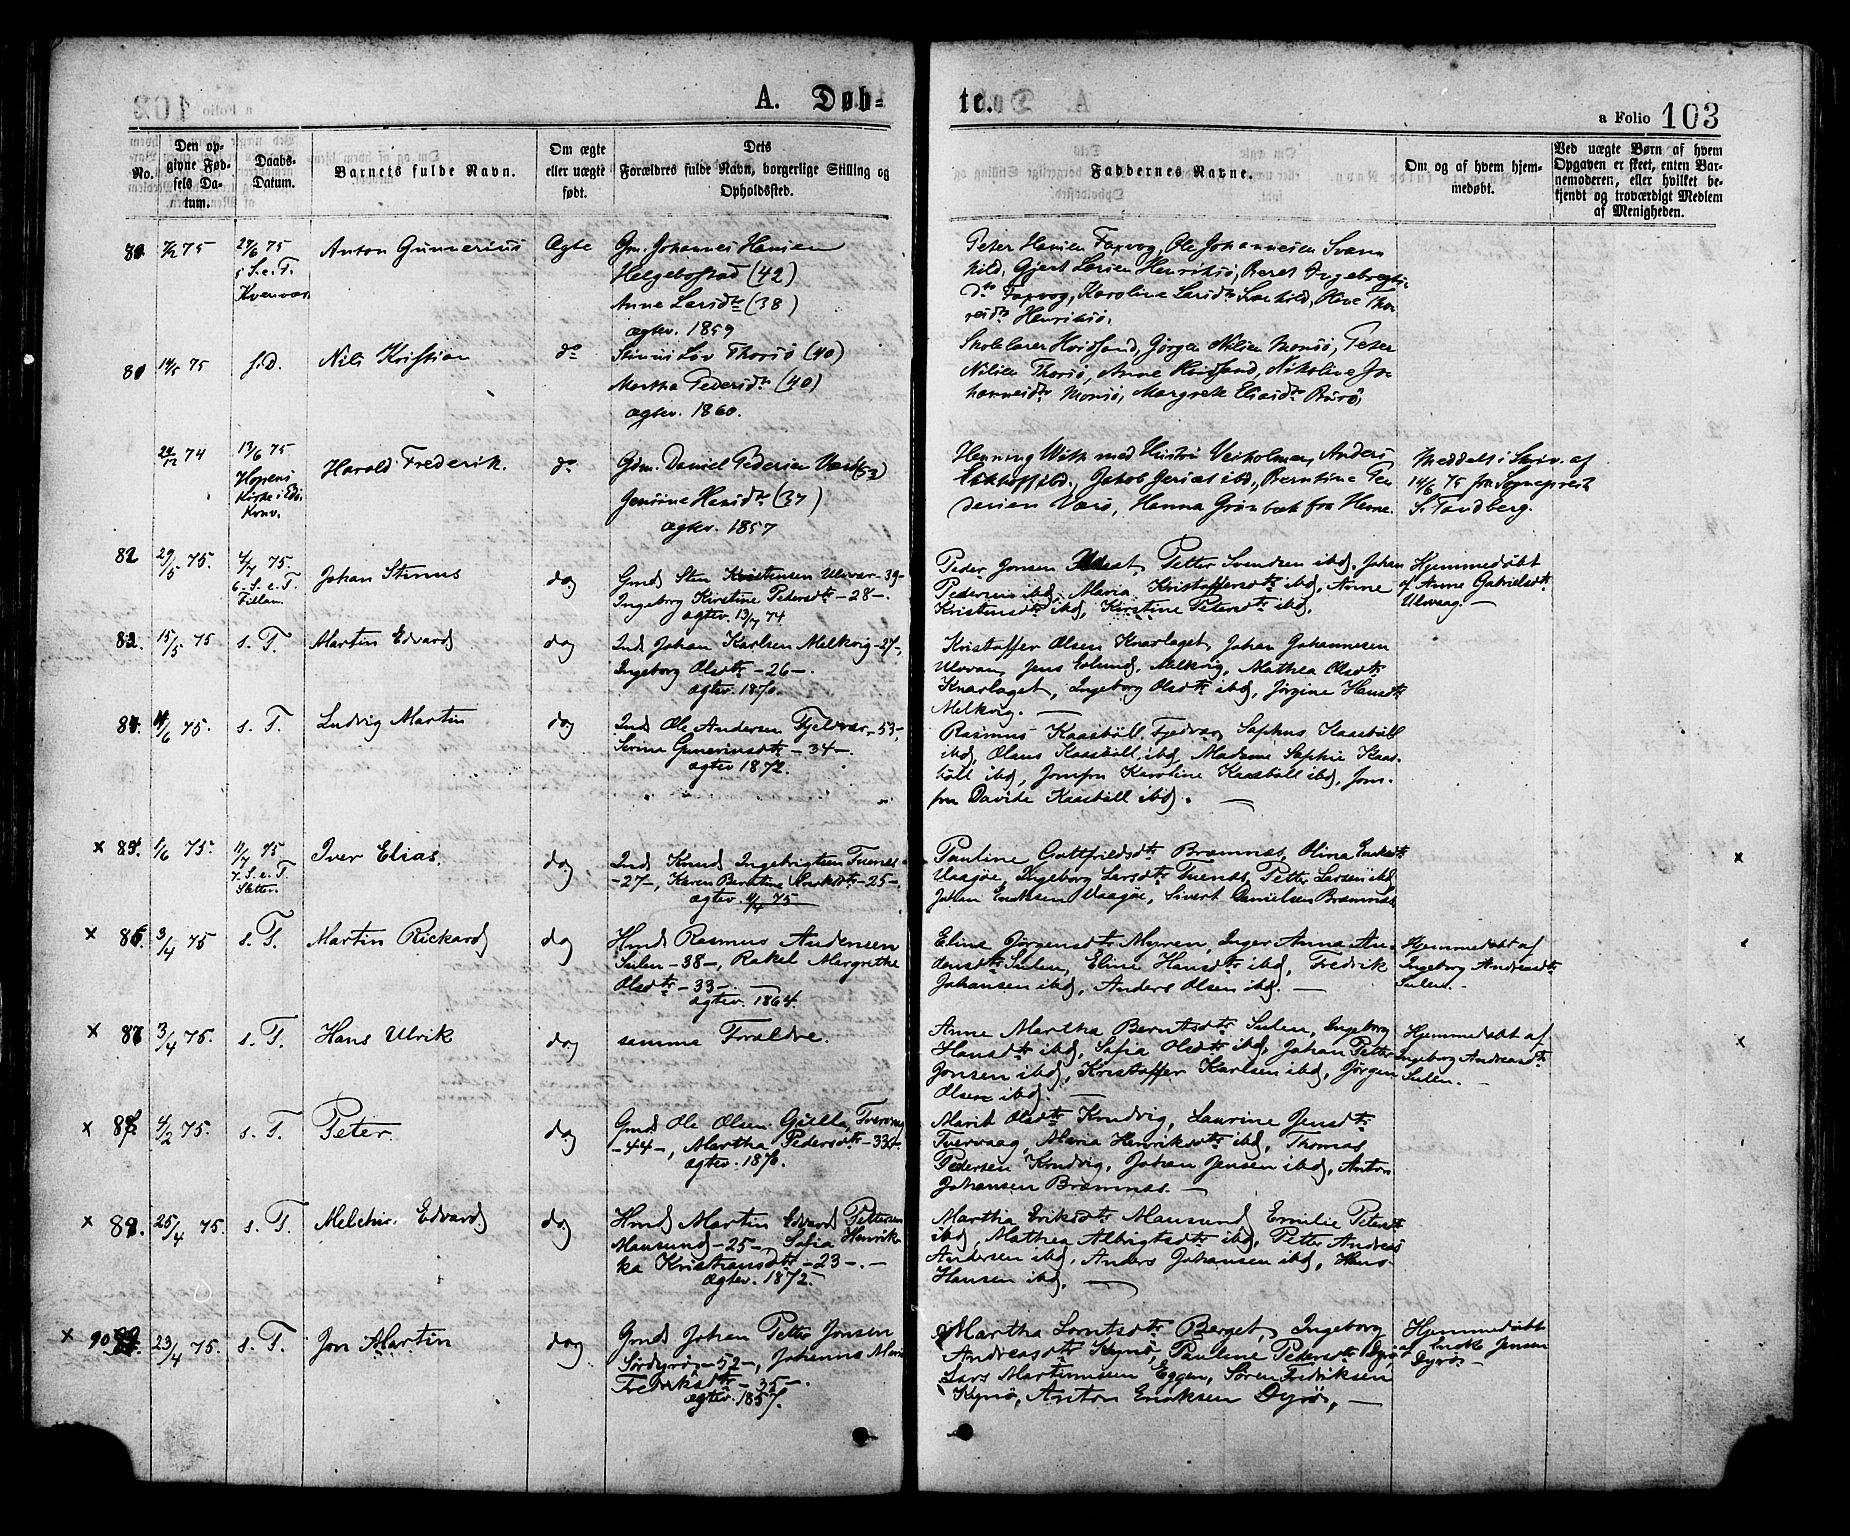 A. Døb-
te.
a Folio 103
No.
Den op-
givne Fød-
sels Da-
tum.
Daabs-
Datum.
Barnets fulde Navn.
Om ægte
eller uægte
født.
Dets
Forældres fulde Navn, borgerlige Stilling og
Opholdssted.
Faddernes Navne.
Om og af hvem hjem-
medøbt.
Ved uægte Børn af hvem
Opgaven er skeet, enten Bar-
nemoderen, eller hvilket be-
kjendt og troværdigt Medlem
af Menigheden.
75
27/6 75
5 S. e. T.
Anton Gunnerius
Ægte
Gm. Johannes Hansen
Helgebostad (42)
Anne Larsdtr (38)
ægtev. 1859
Peter Hansen Faxvog, Ole Johannesen Svan
hild, Gjert Larsen Henriksø, Beret Ingebregts
dtr Faxvog, Karoline Larsdtr
Henriksø.
14/5 75
s. D.
Nils Kristian
do
Thorsø (40)
Martha Pedersdtr (40)
ægtev. 1860.
Skolelærer Hvidsand, Jørgen Nilsen Monsø, Peter
Nilsen Thorsø, Anne Hvidsand, Nikoline Jo-
hannesdtr Monsø, Margrete
74
13/6 75
Hopens
Kirke i
Harald Frederik.
do
Gdm. Daniel Pedersen
Hansdtr (37)
ægtev. 1857
Henning With med Hustru Veiholmen, Anders
ibd., Jakob ibd., Berntine Pe
dersen Værø, Hanna Grønbæk fra Hevne.
Meddelt i Skriv. af
14/6 75 fra Sognepræst
S. Tandberg.
82
29/5 75.
4/7 75.
6. S. e. T.
Fillan.
Johan Stinus
do
Gmd Sten Kristensen Ulvær -39-
Ingeborg Kirstine Pedersdtr -28-.
ægtev. 13/7 74
Peder Jonsen, Petter Svendsen ibd, Johan
Pedersen ibd, Maria Kristoffersdtr ibd, Anne
Kristensdtr ibd, Kirstine Petersdtr ibd.
Hjemmedøbt
af Anne Gabrielsdtr
Ulvaag. —
15/5 75
s. T.
Martin Edvard
do
Ind Johan Karlsen Melkvig -27-,
Ingeborg Olsdtr -26-.
ægtev. 1870.
Kristoffer Olsen Knarlaget, Johan Johannesen
Ulvan, Jens Eslund, Melkvig, Mathea Olsdtr
Knarlaget, Ingeborg Olsdtr ibd, Jørgine Hansdtr
Melkvig. —
75.
s. T.
Ludvig Martin
do
Ind Ole Andersen Fjeldvær -53-,
Serine Gunneriusdtr -34-.
ægtev 1872.
Rasmus Kaasbøll Fjedvær, Sophus Kaasbøll
ibd, Olaus Kaasbøll ibd, Madame Sophie Kaas-
bøll ibd, Jomfru Karoline Kaasbøll ibd, Jom-
fru Davide Kaasbøll ibd. —
x
1/6 75.
11/7 75
7. S. e. T.
Sletten.
Iver Elias.
do
Ind Knud Ingebrigtsen Tuenes
-27-, Karen Berntine -25-.
ægtev. 75
Pauline Gottfriedsdtr Bremnæs, Olina
Vaagøe, Ingeborg Larsdtr Tuenæs, Petter Larsen ibd
Johan Eriksen Vaagøe, Sivert Danielsen Bremnæs
x
x
3/4 75
s. T.
Martin Rickard
do
Hmd Rasmus Andersen
Sulen -38-, Rakel Margrethe
Olsdtr -33-.
ægtev. 1864.
Eline Jørgensdtr Myren, Inger Anna An-
densdtr Sulen, Eline Hansdtr ibd, Fredrik
Johansen ibd, Anders Olsen ibd. —
Hjemmedøbt af
Ingeborg Andreasdtr
Sulen. -
x
3/4 75.
s. T.
Hans Ulrik
do
samme Forældre.
Anne Martha Berntsdtr Sulen, Ingeborg
Hansdtr ibd, Sofia Olsdtr ibd, Johan Petter
Jonsen ibd, Kristoffer Karlsen ibd, Jørgen
Olsen ibd. —
Hjemmedøbt af
Ingeborg Andreasdtr
Sulen. -
x
x
4/2 75.
s. T.
Peter.
do
Gmd Ole Olsen Gulla, Tvervaag
-44-, Martha Pedersdtr -33-.
ægtev. 1870.
Marit Olsdtr Knudvig, Laurine Jensdtr
Tvervaag, Maria Henriksdtr ibd, Thomas
Pedersen Knudvig, Johan Jensen ibd, Anton
Johansen Bremnæs. —
x
25/4 75.
s. T.
Melchior Edvard
do
Hmd Martin Edvard Pettersen
Mausund -25-, Sofia Henrik-
ka Kristiansdtr -23-. -
Ægtev. 1872.
Martha Eriksdtr Mausund, Emilie Petersdtr
ibd, Mathea Albrigtsdtr ibd, Petter Andreas
Andersen ibd, Anders Johansen ibd, Hans
Hansen ibd. —
x 90
23/4 75.
s. T.
Jon Martin
do
Gmd Johan Petter Jonsen
Sørdyrø -52-, Johanna Maria
Fredriksdtr -35-.
ægtev. 1857.
Martha Lorntsdtr Berget, Ingeborg
Andreasdtr Kynø, Pauline Pedersdtr Dyrø
Lars Martinusen Eggen, Søren Fredriksen
Kynø, Anton Eriksen Dyrø, —
Hjemmedøbt
Jensen
Dyrø -